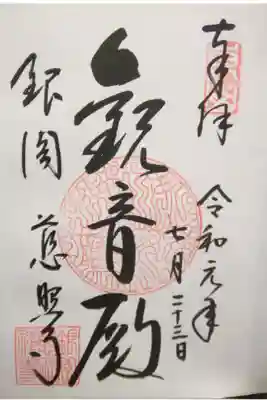 奉拝
令和元年
七月二十三日
観音殿
銀閣 慈照寺